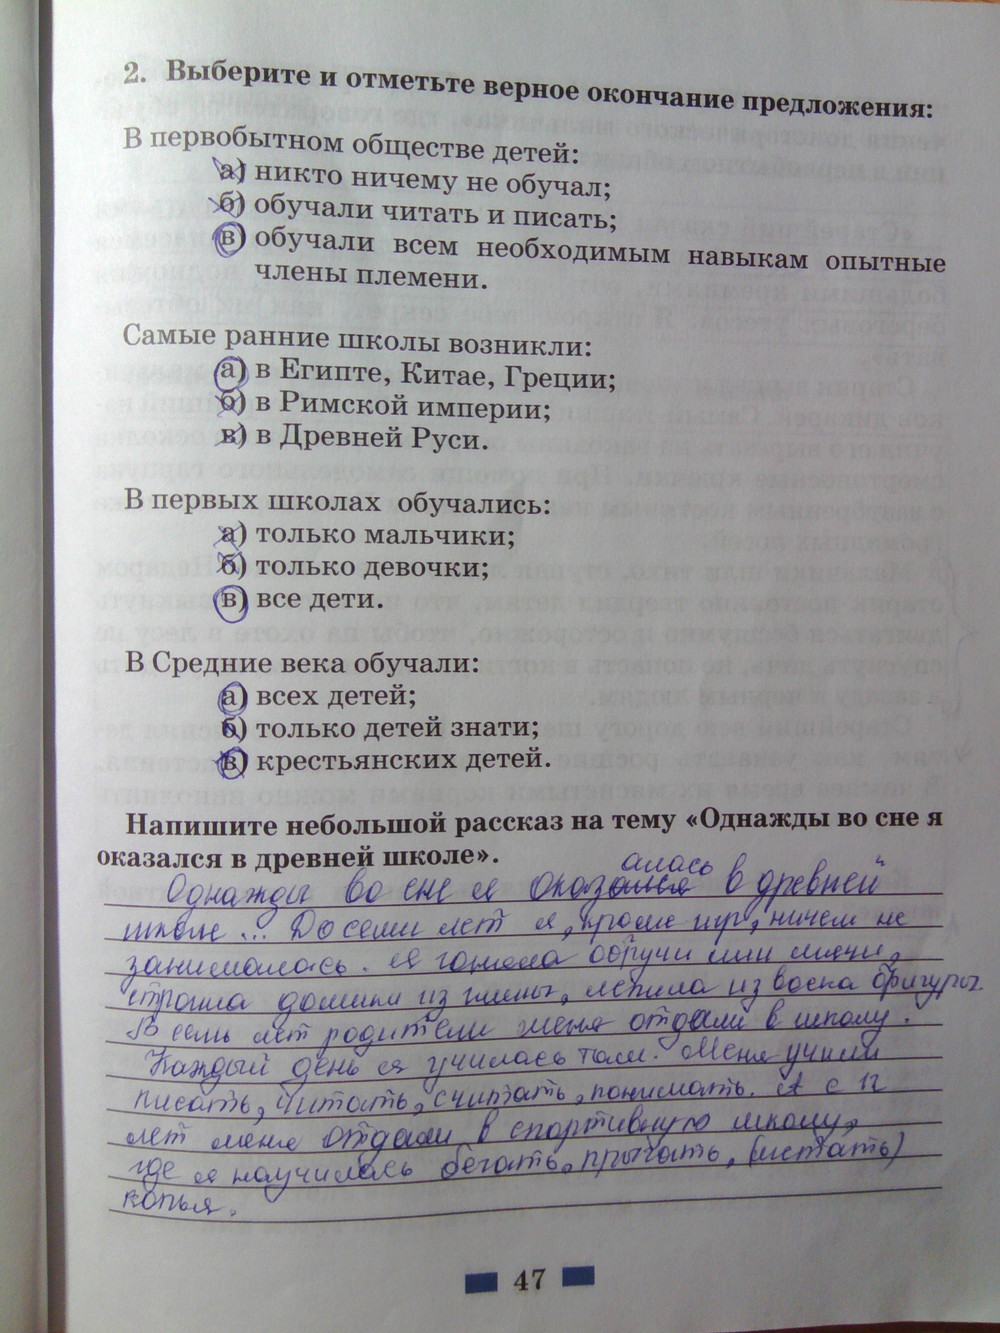 2. Выберите и отметьте верное окончание предложения:
В первобытном обществе детей:
а) никто ничему не обучал;
б) обучали читать и писать;
в) обучали всем необходимым навыкам опытные
члены племени.
Самые ранние школы возникли:
а) в Египте, Китае, Греции;
б) в Римской империи;
в) в Древней Руси.
В первых школах обучались:
а) только мальчики;
б) только девочки;
в) все дети.
В Средние века обучали:
а) всех детей;
б) только детей знати;
в) крестьянских детей.
Напишите небольшой рассказ на тему «Однажды во сне я
оказался в древней школе».
алась
Однажды во сне я оказался в древней
школе... До семи лет я, кроме игр, ничем не
занималась. Я гоняла обручи или мячи,
строила домики из глины, лепила из воска фигуры.
В семь лет родители меня отдали в школу.
Каждый день я училась там. Меня учили
писать, читать, считать, понимать. А с 12
лет меня отдали в спортивную школу,
где я научилась бегать, прыгать, (метать)
копья.
47